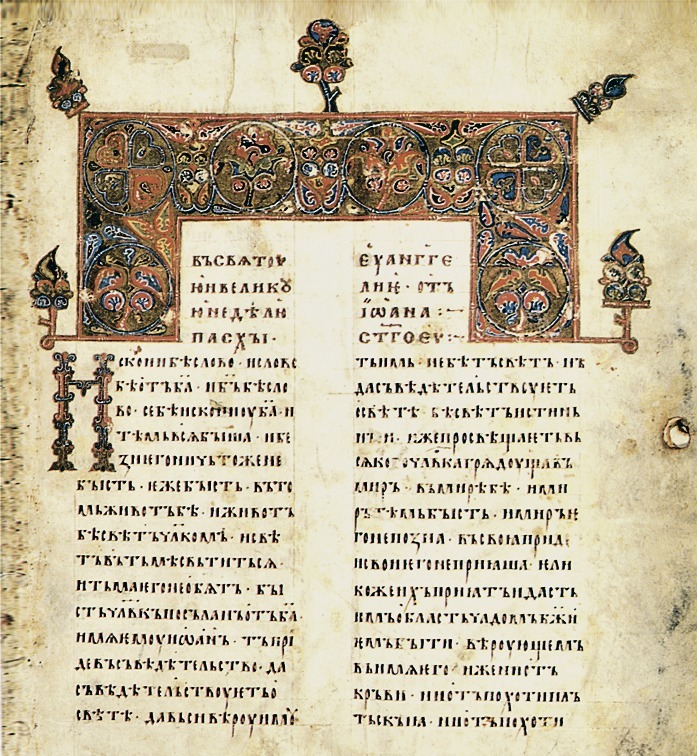 ВЪСВѦТОУ
ЮИВЕЛИКОУ
ЮНЕДѢЛЮ
ПАСХЫ·
скони бѣ слово · и слово
бѣ отъ ба҃ · и бъ҃ бѣ сло
во · се бѣ искони оу ба҃ · и
тѣмь всѧ быша · и бе
з него ничьтоже не
бысть · еже бысть · въ то
мь животъ бѣ · и животъ
бѣ свѣтъ чл҃комъ · и свѣ
тъ въ тьмѣ свьтитьсѧ ·
и тьма его не обѧтъ · бы
сть чл҃вкъ посъланъ отъ ба҃
имѧ ѥмоу иѡан҃ъ · тъ при
де въ съвѣдѣтельство · да
съвѣдѣтельствоуеть о
свѣтѣ · да вьси вѣроу имоуть
ЕУАНГГЕ
ЛИѤ · ОТЪ
ІѠАНА
СТ҃ГО ЕУ
тьимь · не бѣ тъ свѣтъ · нъ
да съвѣдѣтельствоуеть
о свѣтѣ · бѣ свѣтъ истинь
ныи · иже просвѣщаеть вь
сѧкого чл҃вка грѧдоущаѧ въ
миръ · въ мирѣ бѣ · и ми
ръ тѣмь бысть · и миръ ѥ
го не позна · въ своѧ приде
и свои ѥго не приѧша · ели
коже ихъ приѧтъ и дасть
имъ область чѧдомъ бж҃и
ѥмъ быти · вѣроующемъ
въ имѧ ѥго · иже ни отъ
кръви · ни отъ похоти пль
тьскыѧ · ни отъ похоти